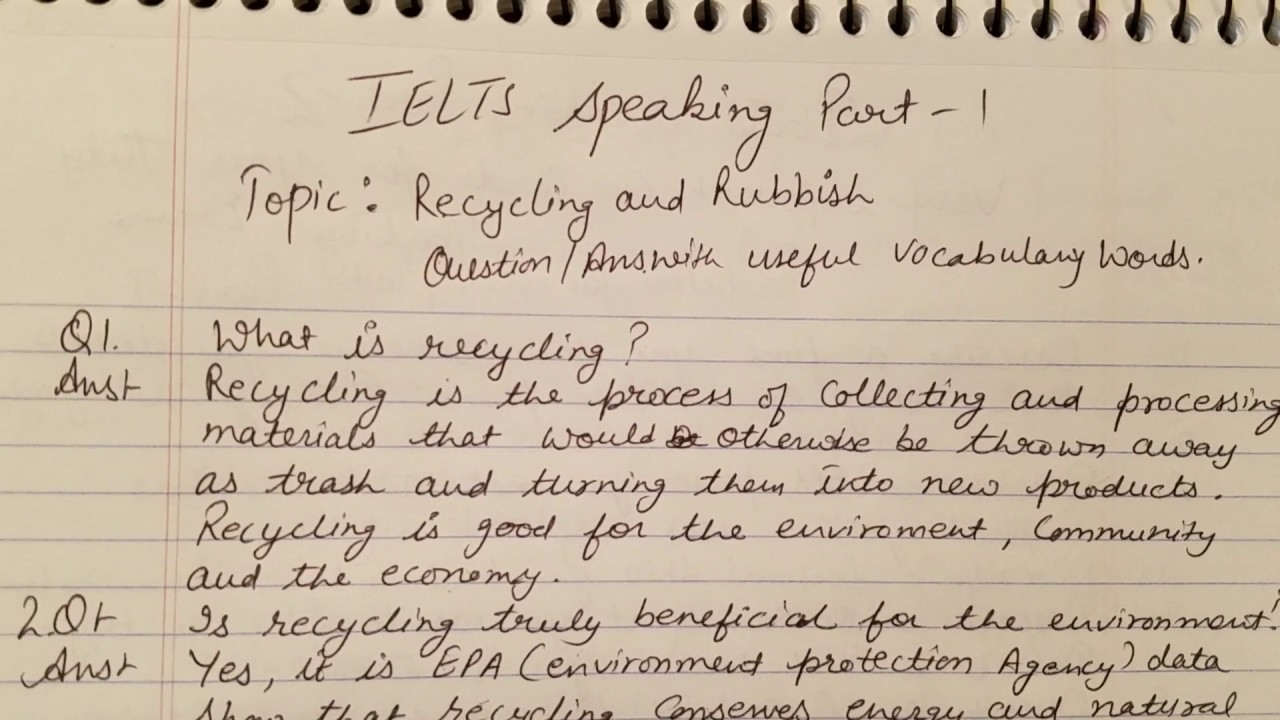 IELTS Speaking Part - 1
Topic: Recycling and Rubbish
Question/Ans with useful vocabulary words.
Q1. What is recycling?
Ans+ Recycling is the process of collecting and processing
materials that would otherwise be thrown away
as trash and turning them into new products.
Recycling is good for the enviroment, Community
and the economy.
2Q+ Is recycling truly beneficial for the environment?
Ans+ Yes, it is EPA (environment protection Agency) data
Show that recycling conserves energy and natural